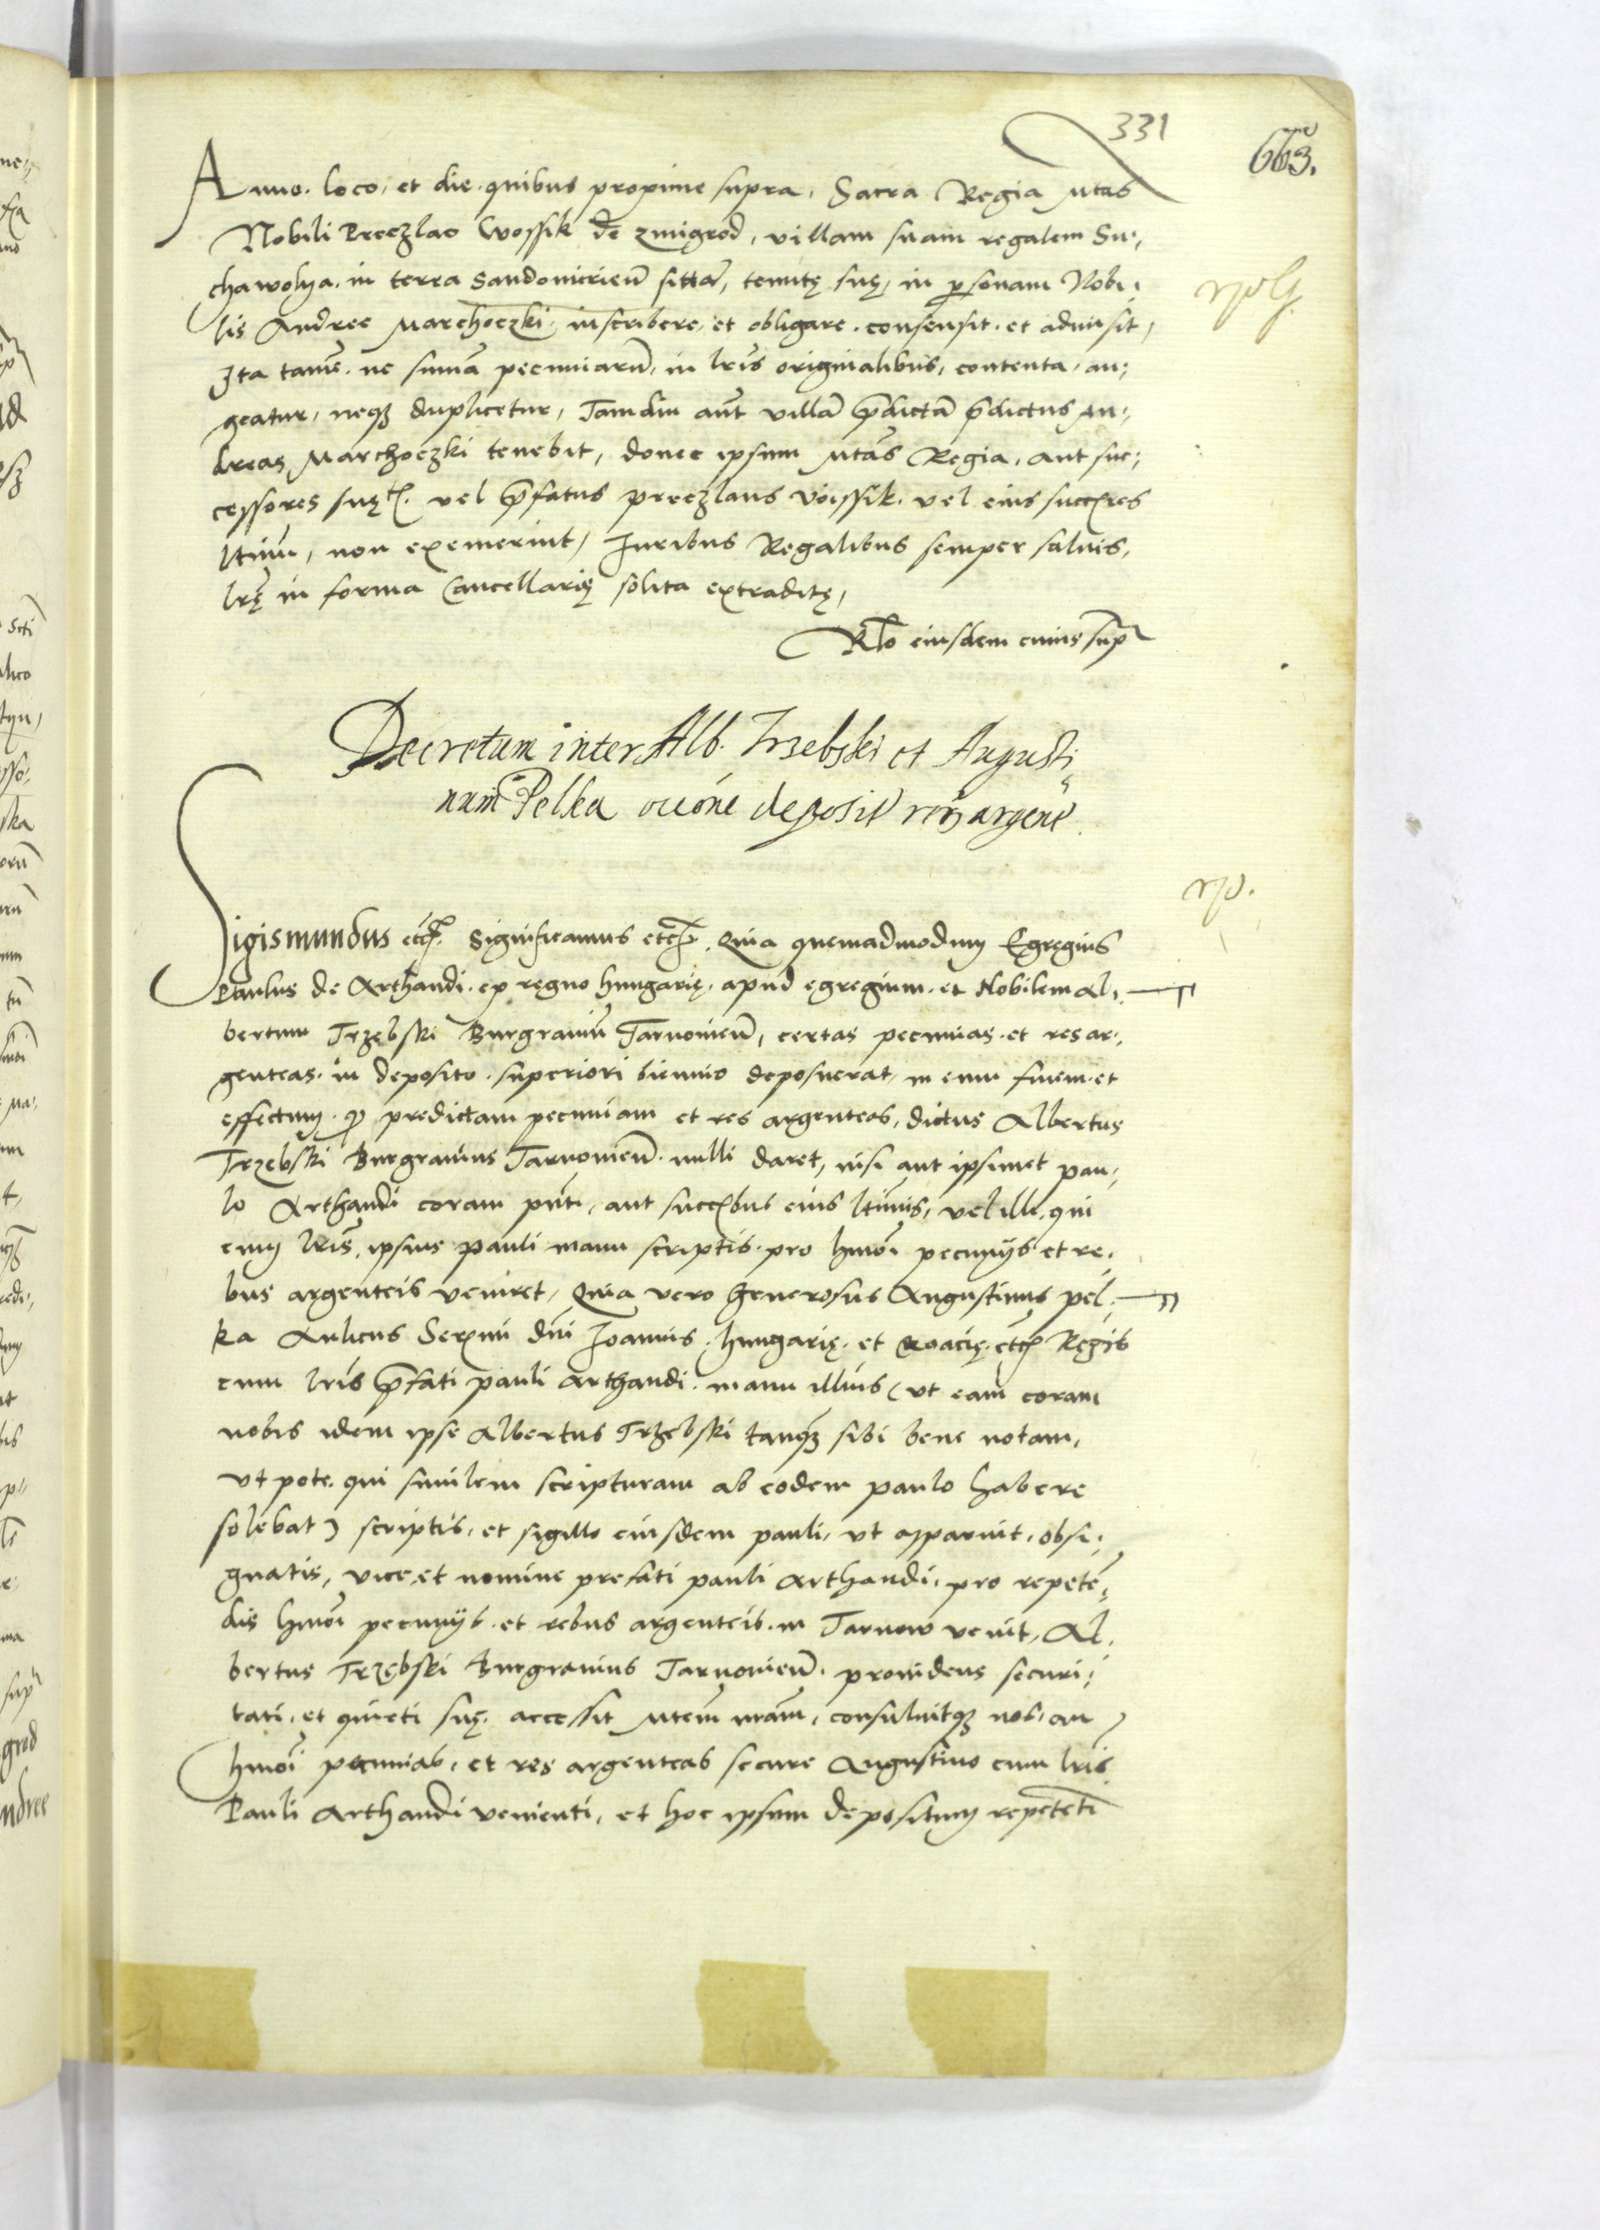 331
663.
Anno. loco, et die quibus proxime supra, Sacra Regia Mtas
Nobili Preczlao Wossik de zmigrod, villam suam regalem Su,
chawolya. in terra sandomirien̄ sittā, tenutę suę, in personam Nobi,
lis Andree Marchoczki, inscribere, et obligare. consensit. et admisit,
Ita tamē. ne sum̄a pecuniarū, in lr̄is originalibus, contenta, au,
geatur, neqz duplicetur, Tamdiu aūt villā p̄dictā p̄dictus An,
dreas Marchoczki tenebit, donec ipsum Mtās Regia, aut suc,
cessores suę. vel p̄fatus preczlaus Voissik. vel eius succr̄es
ltimi, non exemerint, Juribus Regalibus semper saluis,
lr̄ę in forma Cancellarię solita extraditę,
Rlo eiusdem cuius supr̄
Decretum inter Alb. Trzebski et Augusti
num Pelka deposit rerū argent.
Sigismundus etc. Significamus etc. Quia quemadmodum Egregius
Paulus de Arthandi. ex regno hungarię, apud egregium. et Nobilem Al,
bertum Trzębski Burgrauiū Tarnouien̄, certas pecunias. et res ar,
genteas. in deposito. superiori biennio deposuerat, in eum finem. et
effectum. q predictam pecuniam et res argenteas, dictus Albertus
Trzębski Burgrauius Tarnouien̄. nulli daret, nisi aut ipsimet pau,
lo Arthandi coram pn̄ti, aut succr̄ibus eius ltimis, vel illi, qui
cum lr̄is, ipsius pauli manu scriptis. pro hmōi pecunijs et re,
bus argenteis veniret, Quia vero Generosus Augustinus pel,
ka Aulicus Serēmi dn̄i Joannis. hungarię. et Croacię. etc Regis
cum lr̄is p̄fati pauli arthandi. manu illius (vt eam coram
nobis idem ipse Albertus Trzebski tanqz sibi bene notam,
vt pote. qui similem scripturam ab eodem paulo habere
solebat) scriptis, et sigillo eiusdem pauli, vt apparuit, obsi,
gnatis, vice, et nomine prefati pauli arthandi, pro repetē,
dis hmōi pecunijs. et rebus argenteis. in Tarnow venit, Al,
bertus Trzębski Burgrauius Tarnouien̄. prouidens securi,
tati. et quieti suę. accessit Mtem nrām, consuluitqz nos. an
hmōi pecunias, et res argenteas secure Augustino cum lr̄is
Pauli Arthandi venienti, et hoc ipsum depositum repetēti